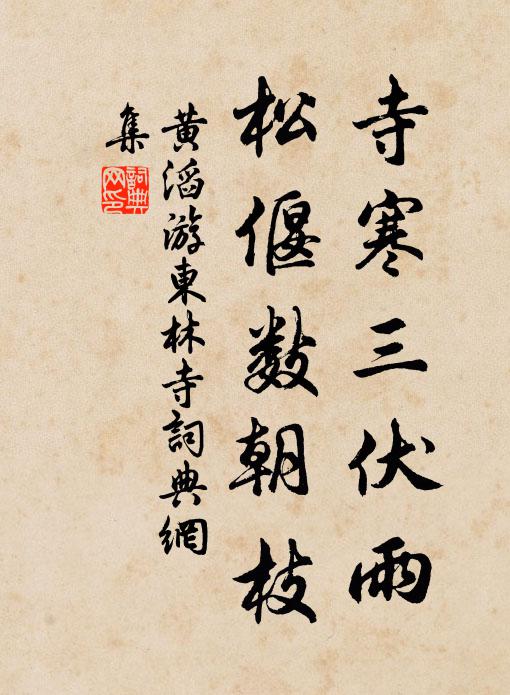 寺寒三伏雨
松偃数朝枝
黄滔游東林寺詞典網
集
詞典
网印